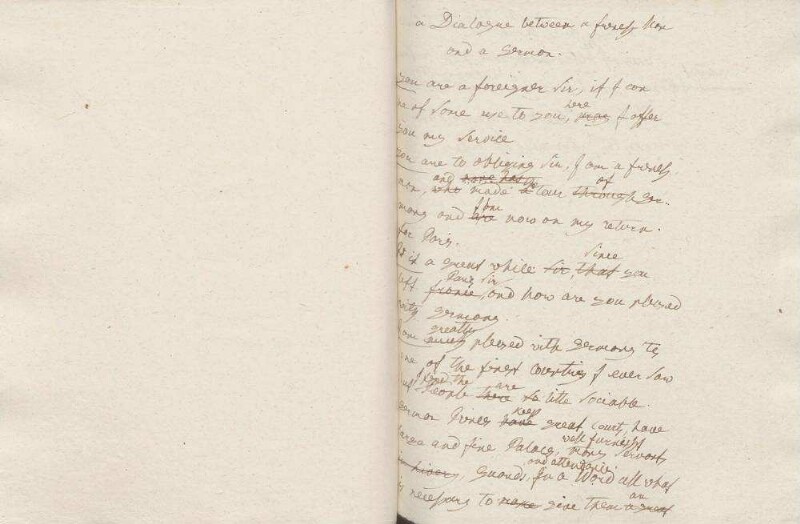 a Dialogue between a french Man
and a german.
you are a foreigner Sir, if I can
be of some use to you, here may I offer
you my Service
you are to obliging Sir, I am a french
man, and who have made the a tour through of Ger-
many and I am are now on my return
for Paris.
Is it a great while Sir, that since you
left Paris Sir france, and how are you pleased
with germany.
I am greatly pleased with germany tis
one of the finest Countries I ever saw
but I find the People there are so little sociable.
german Princes have keep great court, have
large and fine Palaces, well furnisht many Servants
and attendance guards, In a Word all what
is necessary to give them an a great